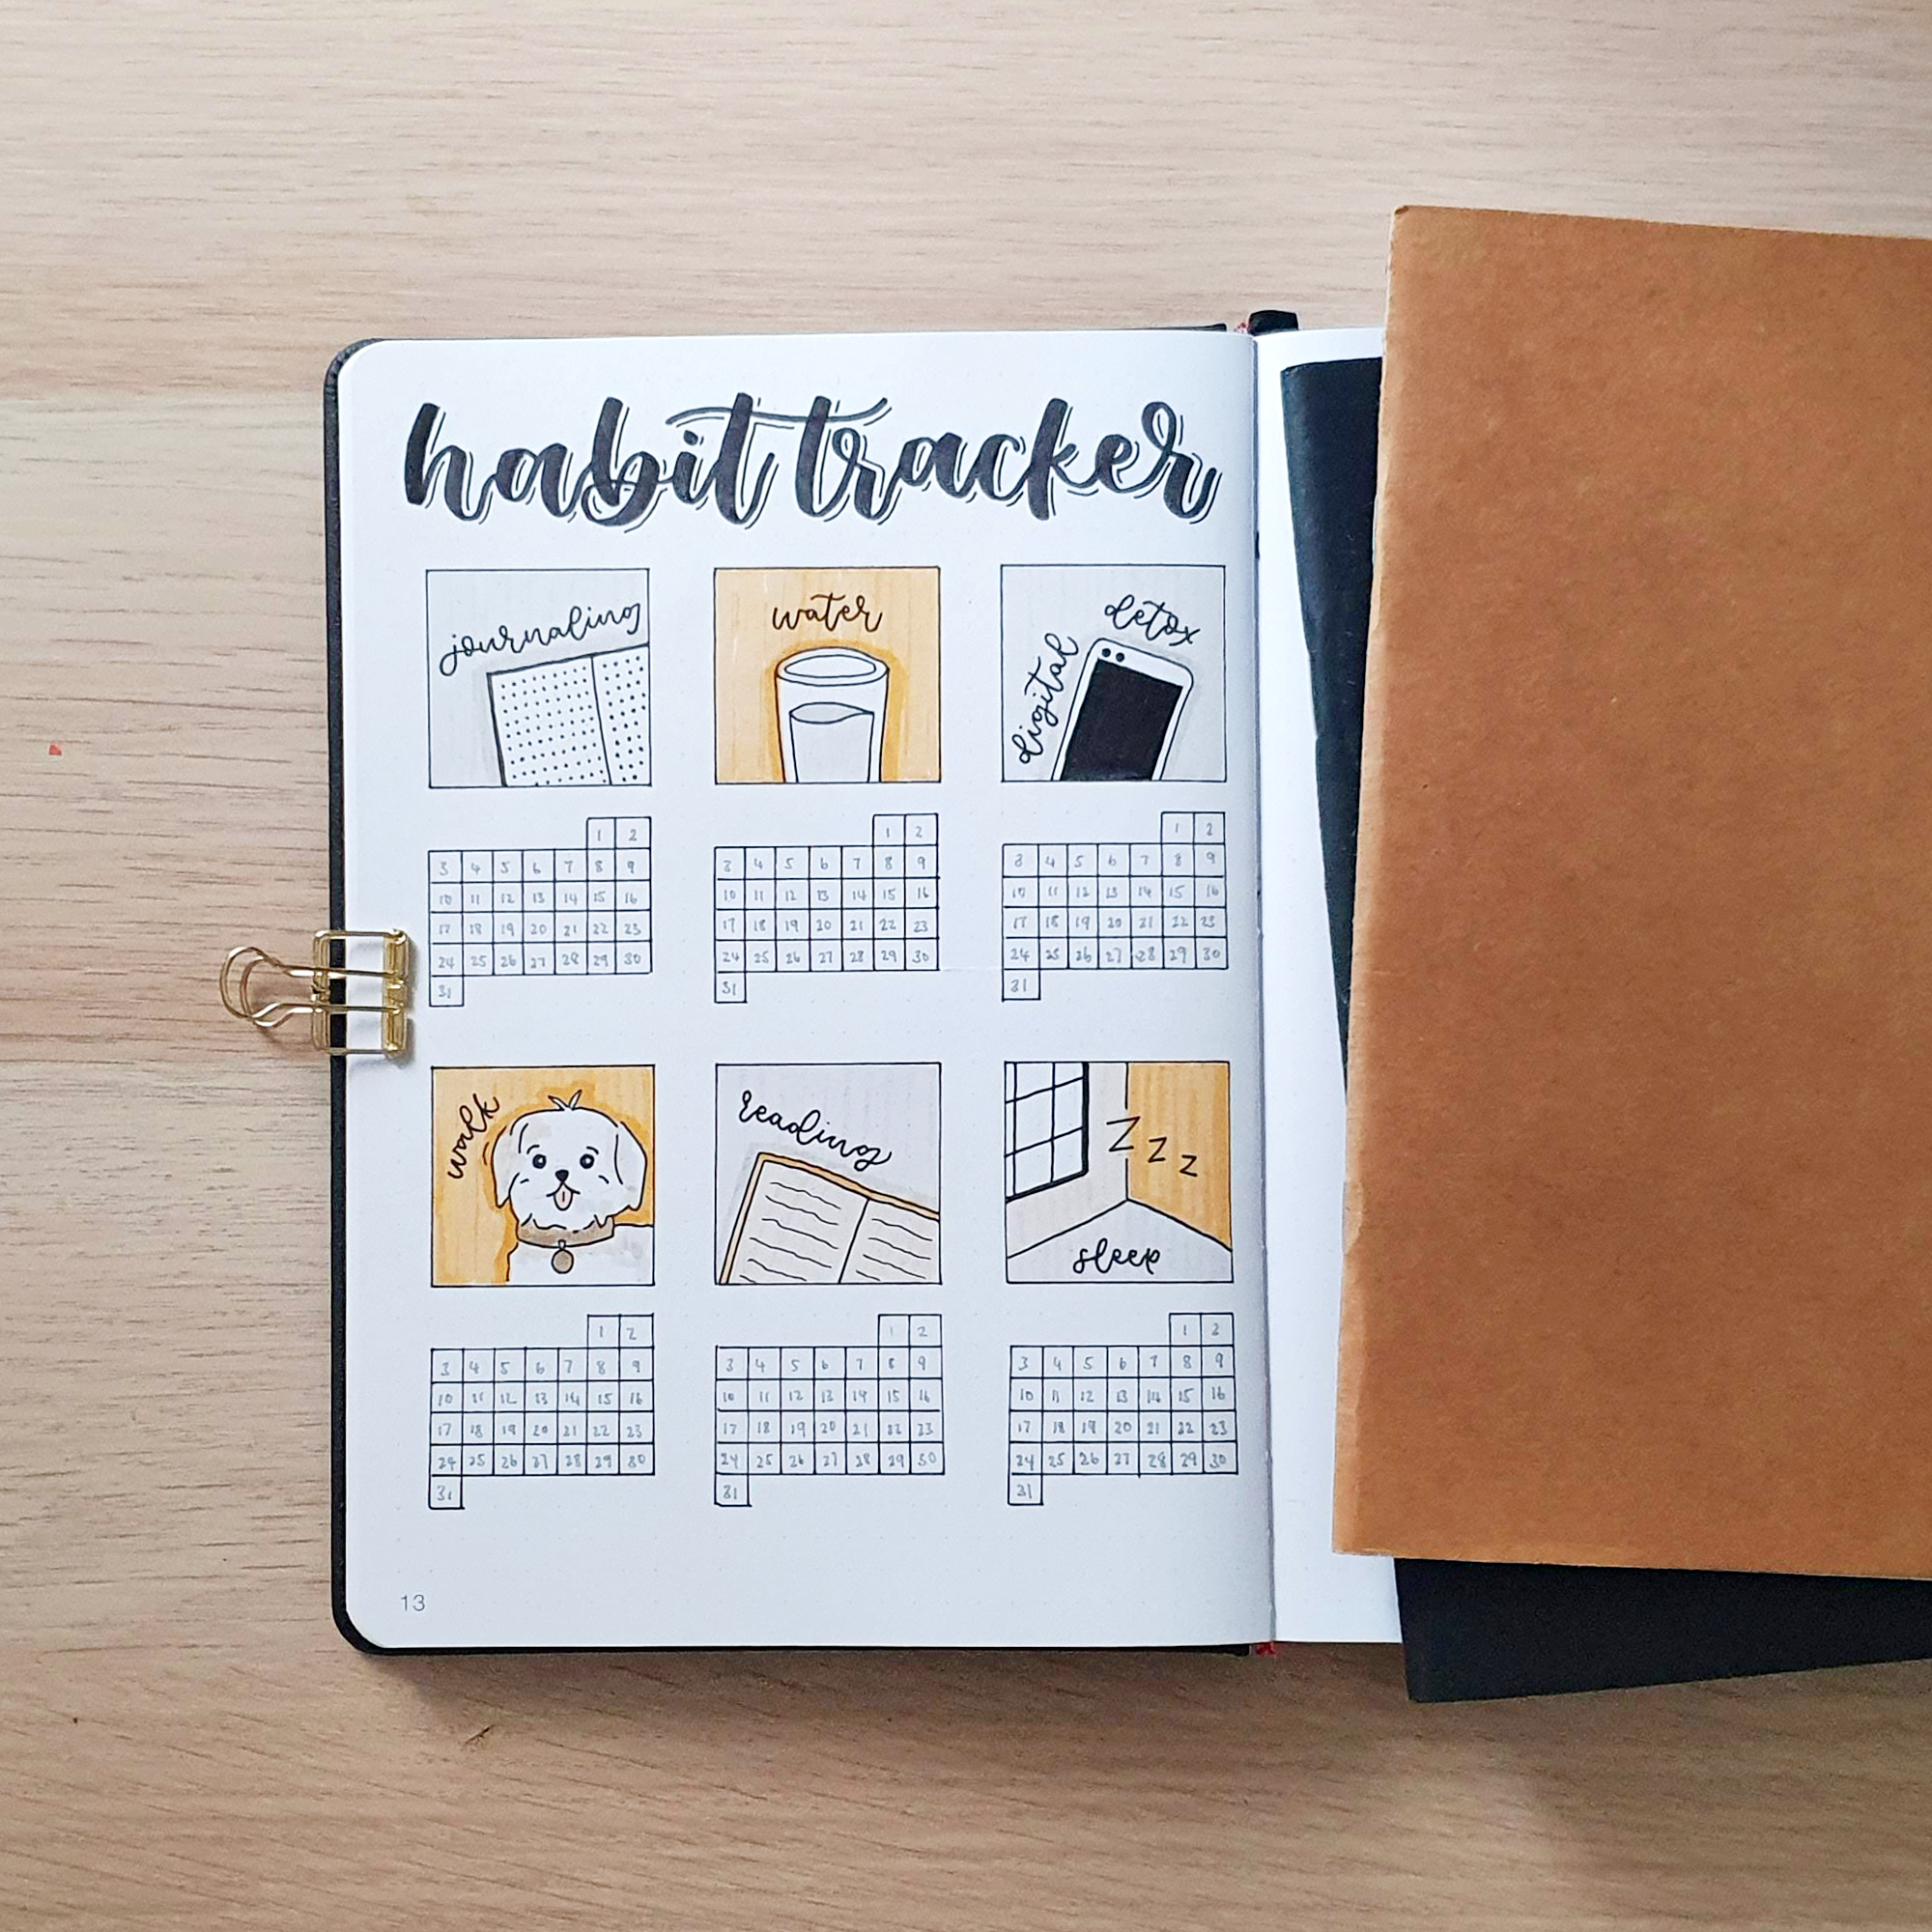 habit tracker
journaling
water
digital detox
1 2
3 4 5 6 7 8 9
10 11 12 13 14 15 16
17 18 19 20 21 22 23
24 25 26 27 28 29 30
31
1 2
3 4 5 6 7 8 9
10 11 12 13 14 15 16
17 18 19 20 21 22 23
24 25 26 27 28 29 30
31
1 2
3 4 5 6 7 8 9
10 11 12 13 14 15 16
17 18 19 20 21 22 23
24 25 26 27 28 29 30
31
walk
reading
Z z z
sleep
1 2
3 4 5 6 7 8 9
10 11 12 13 14 15 16
17 18 19 20 21 22 23
24 25 26 27 28 29 30
31
1 2
3 4 5 6 7 8 9
10 11 12 13 14 15 16
17 18 19 20 21 22 23
24 25 26 27 28 29 30
31
1 2
3 4 5 6 7 8 9
10 11 12 13 14 15 16
17 18 19 20 21 22 23
24 25 26 27 28 29 30
31
13